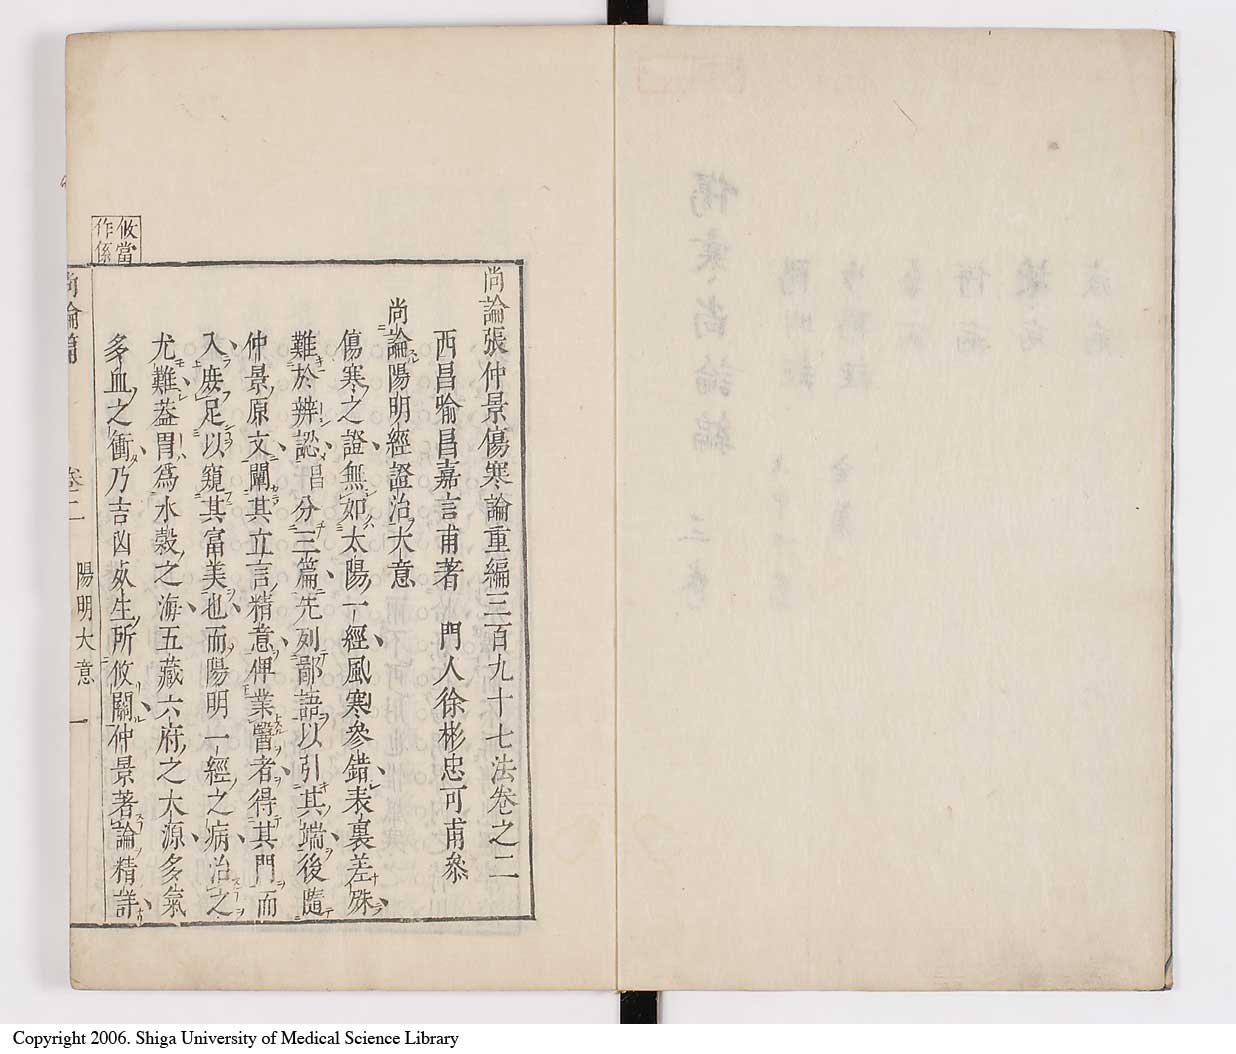 尚論張仲景傷寒論重編三百九十七法卷之二
西昌喻昌嘉言甫著 門人徐彬忠可甫參
尚論陽明經證治大意
傷寒之證無如太陽一經風寒參錯表裏差殊
難於辨認昌分三篇先列鄙語以引其端後隨
仲景原文闡其立言精意俾業醫者得其門而
入庶足以窺其富美也而陽明一經之病治之
尤難蓋胃爲水穀之海五藏六府之大源多氣
多血之衝乃吉凶死生所攸關仲景著論精詳
攸當
作係
尚論篇 卷二 陽明大意 一
傷寒尚論編 三卷
Copyright 2006. Shiga University of Medical Science Library